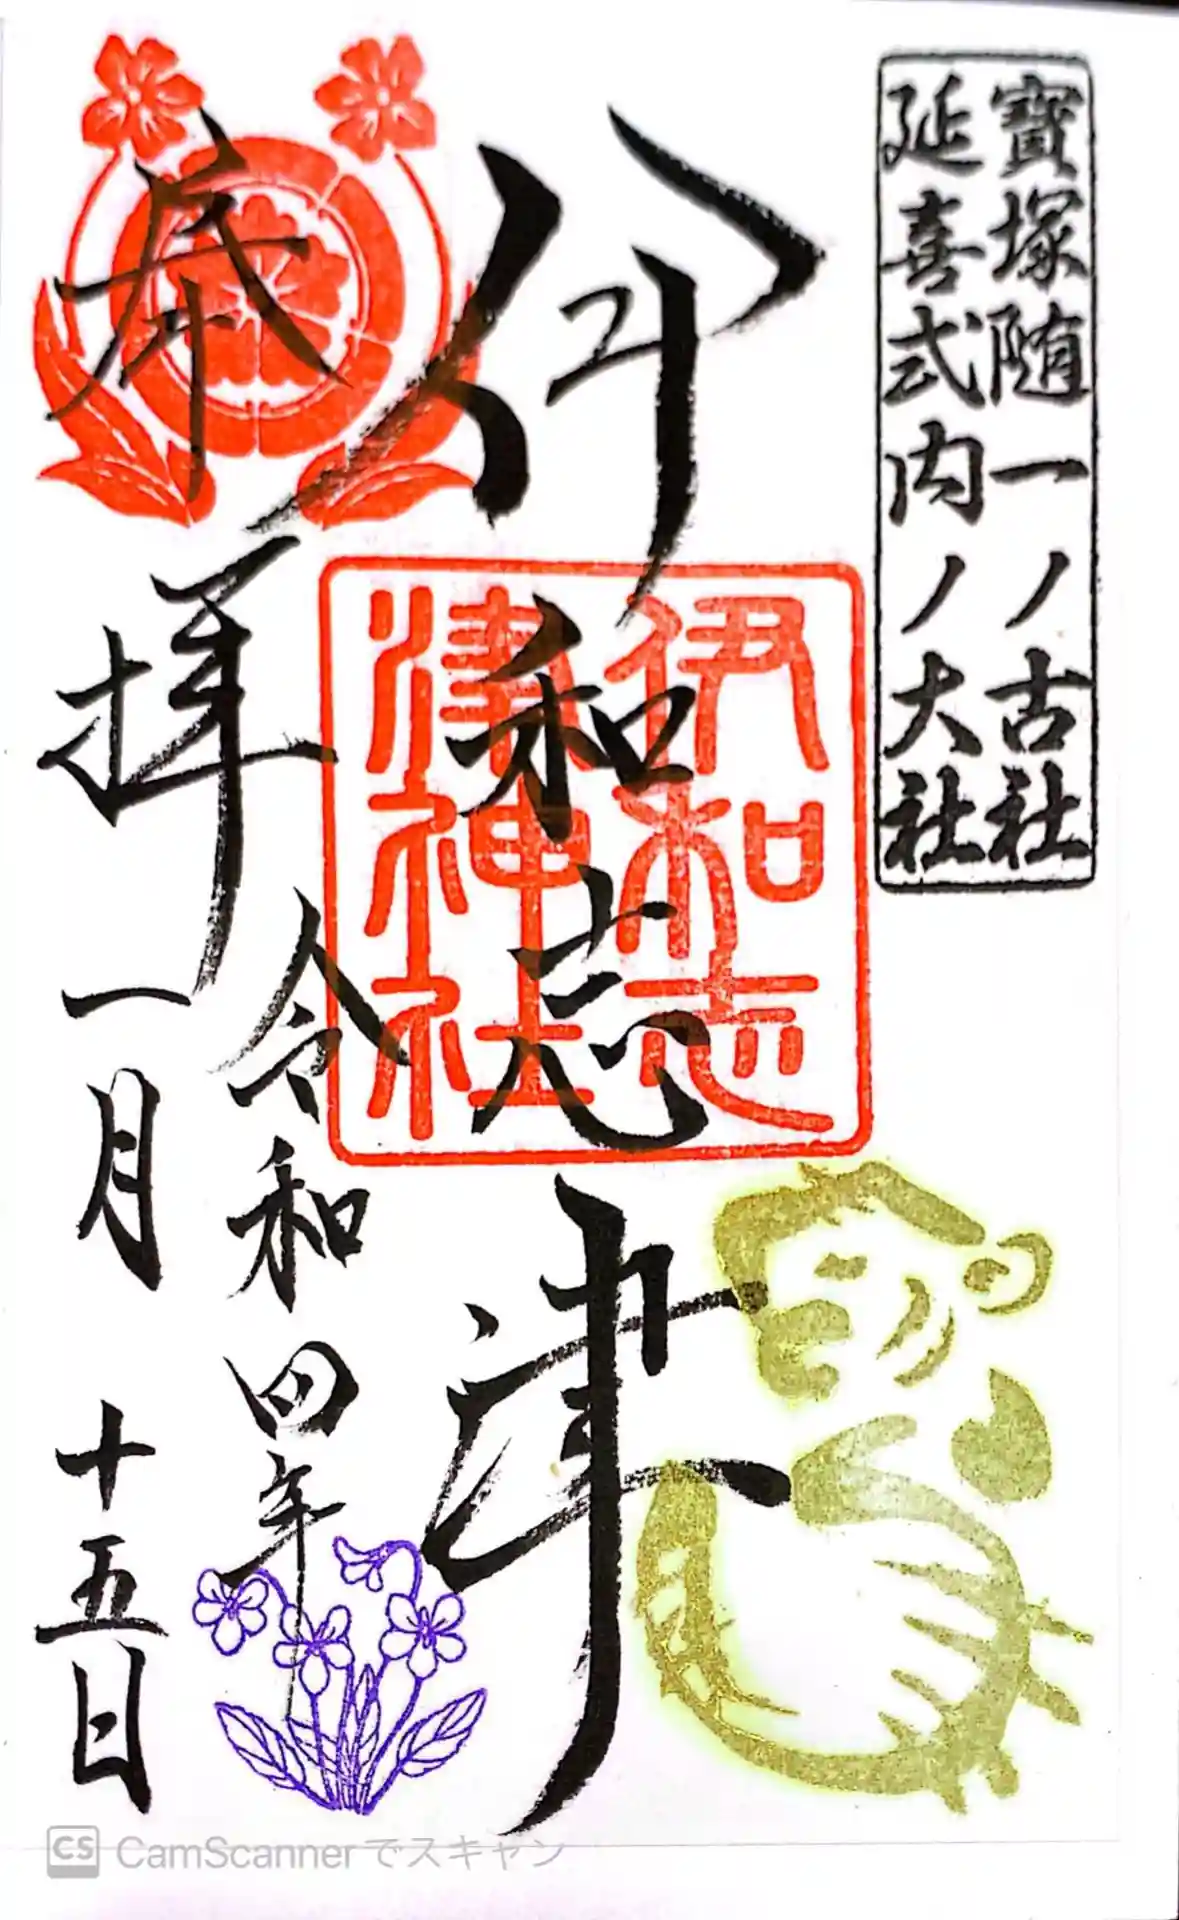 寶塚随一ノ古社
延喜式内ノ大社
伊和志津
伊和志
津神社
奉拝
令和四年
一月十五日
CS CamScannerでスキャン